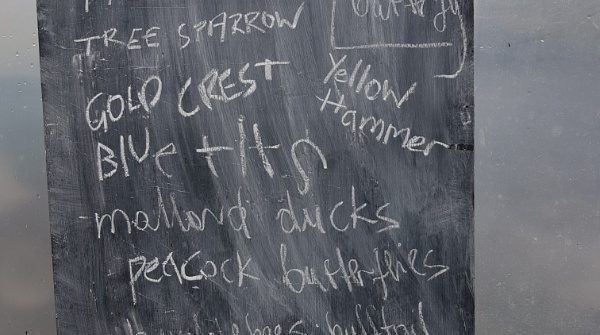 TREE SPARROW
GOLD CREST
Yellow
Hammer
Blue tits
mallard ducks
peacock butterflies